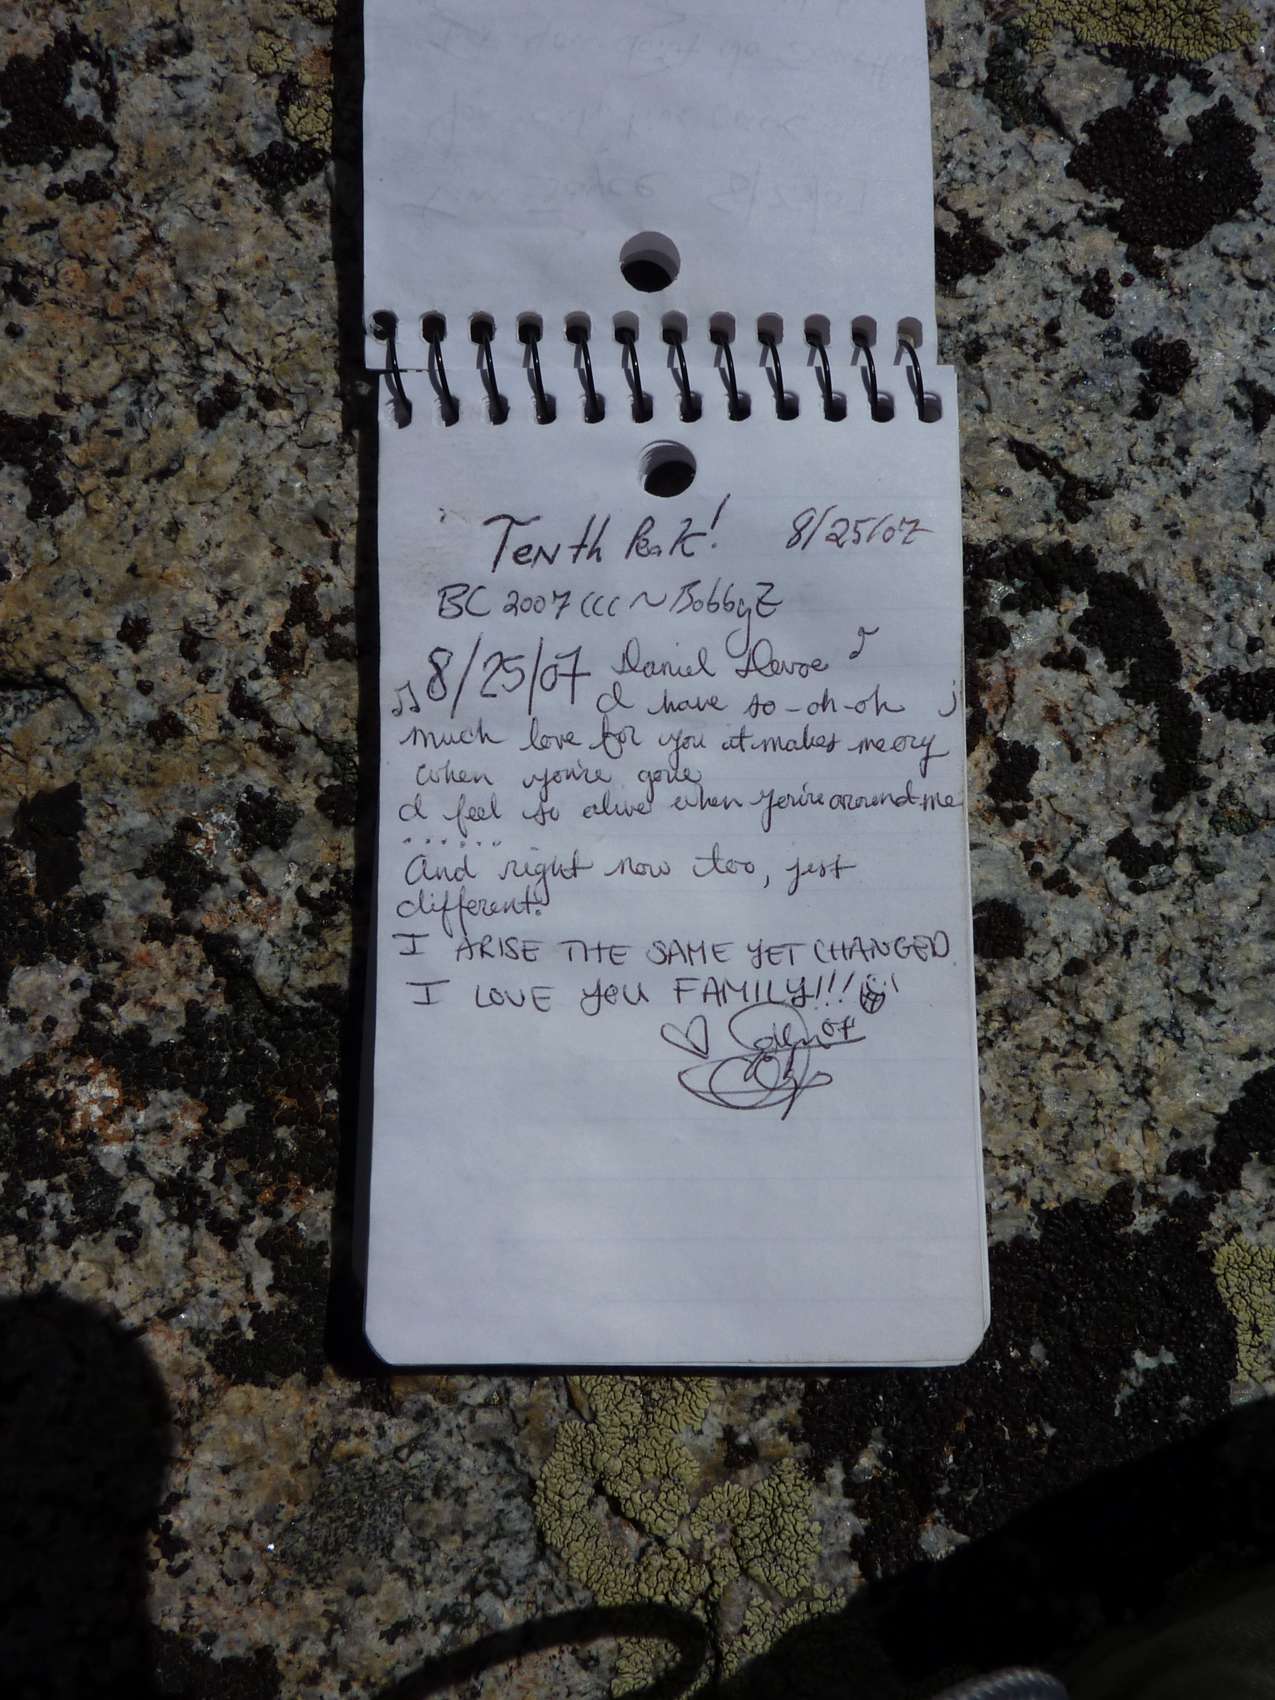 Tenth Peak! 8/25/07
BC 2007 CCC ~ BobbyZ
8/25/07 Daniel Devoe
I have so-oh-oh
much love for you it makes me cry
when you're gone
I feel so alive when you're around me
......
And right now too, jest
different!
I ARISE THE SAME YET CHANGED.
I LOVE YOU FAMILY!!!